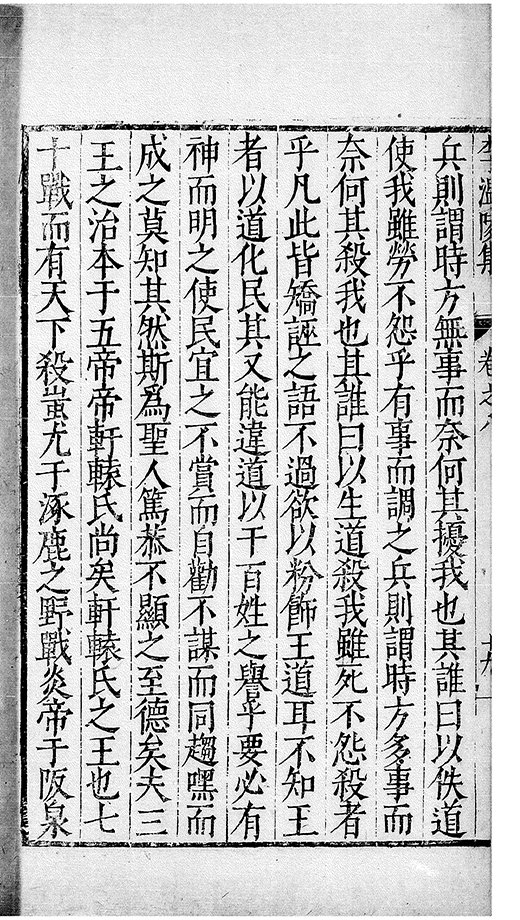 李溫陵集　卷之八　十九
兵則謂時方無事而奈何其擾我也其誰曰以佚道
使我雖勞不怨乎有事而調之兵則謂時方多事而
奈何其殺我也其誰曰以生道殺我雖死不怨殺者
乎凡此皆矯誣之語不過欲以粉飾王道耳不知王
者以道化民其又能違道以干百姓之譽乎要必有
神而明之使民宜之不賞而自勸不謀而同趨嘿而
成之莫知其然斯爲聖人篤恭不顯之至德矣夫三
王之治本于五帝帝軒轅氏尚矣軒轅氏之王也七
十戰而有天下殺蚩尤于涿鹿之野戰炎帝于阪泉